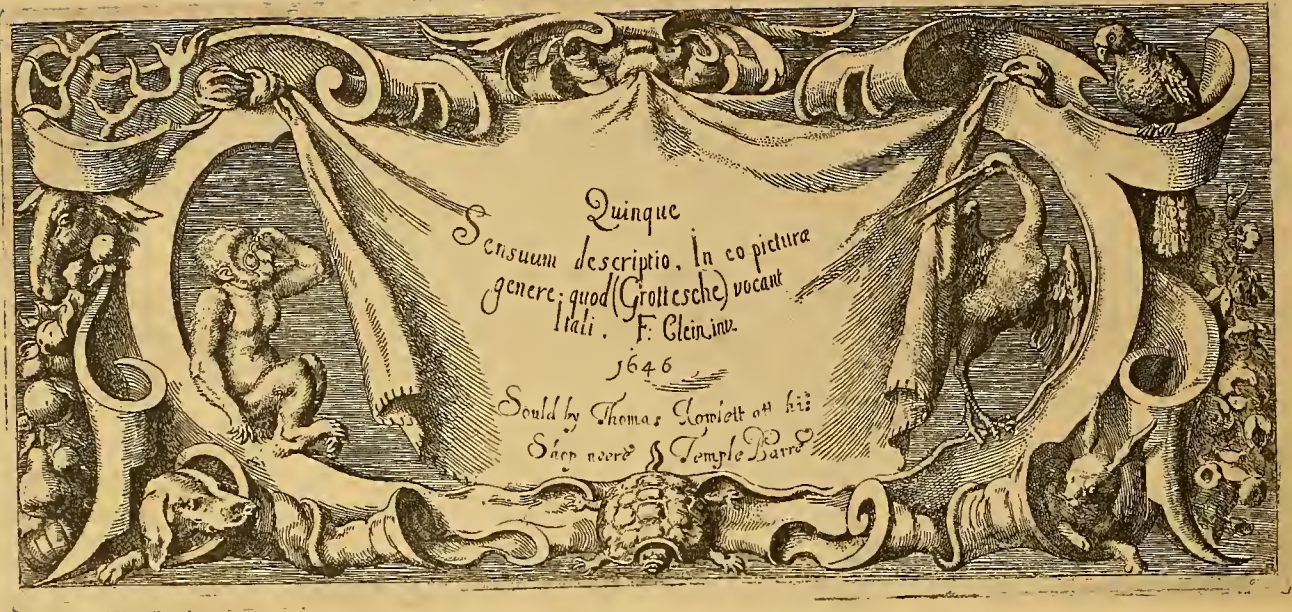 Quinque
Sensuum descriptio. In eo picturæ
genere, quod (Grottesche) vocant
Itali. F. Clein inv.
1646
Sould by Thomas Rowlett att his
Shop neere Temple Barre